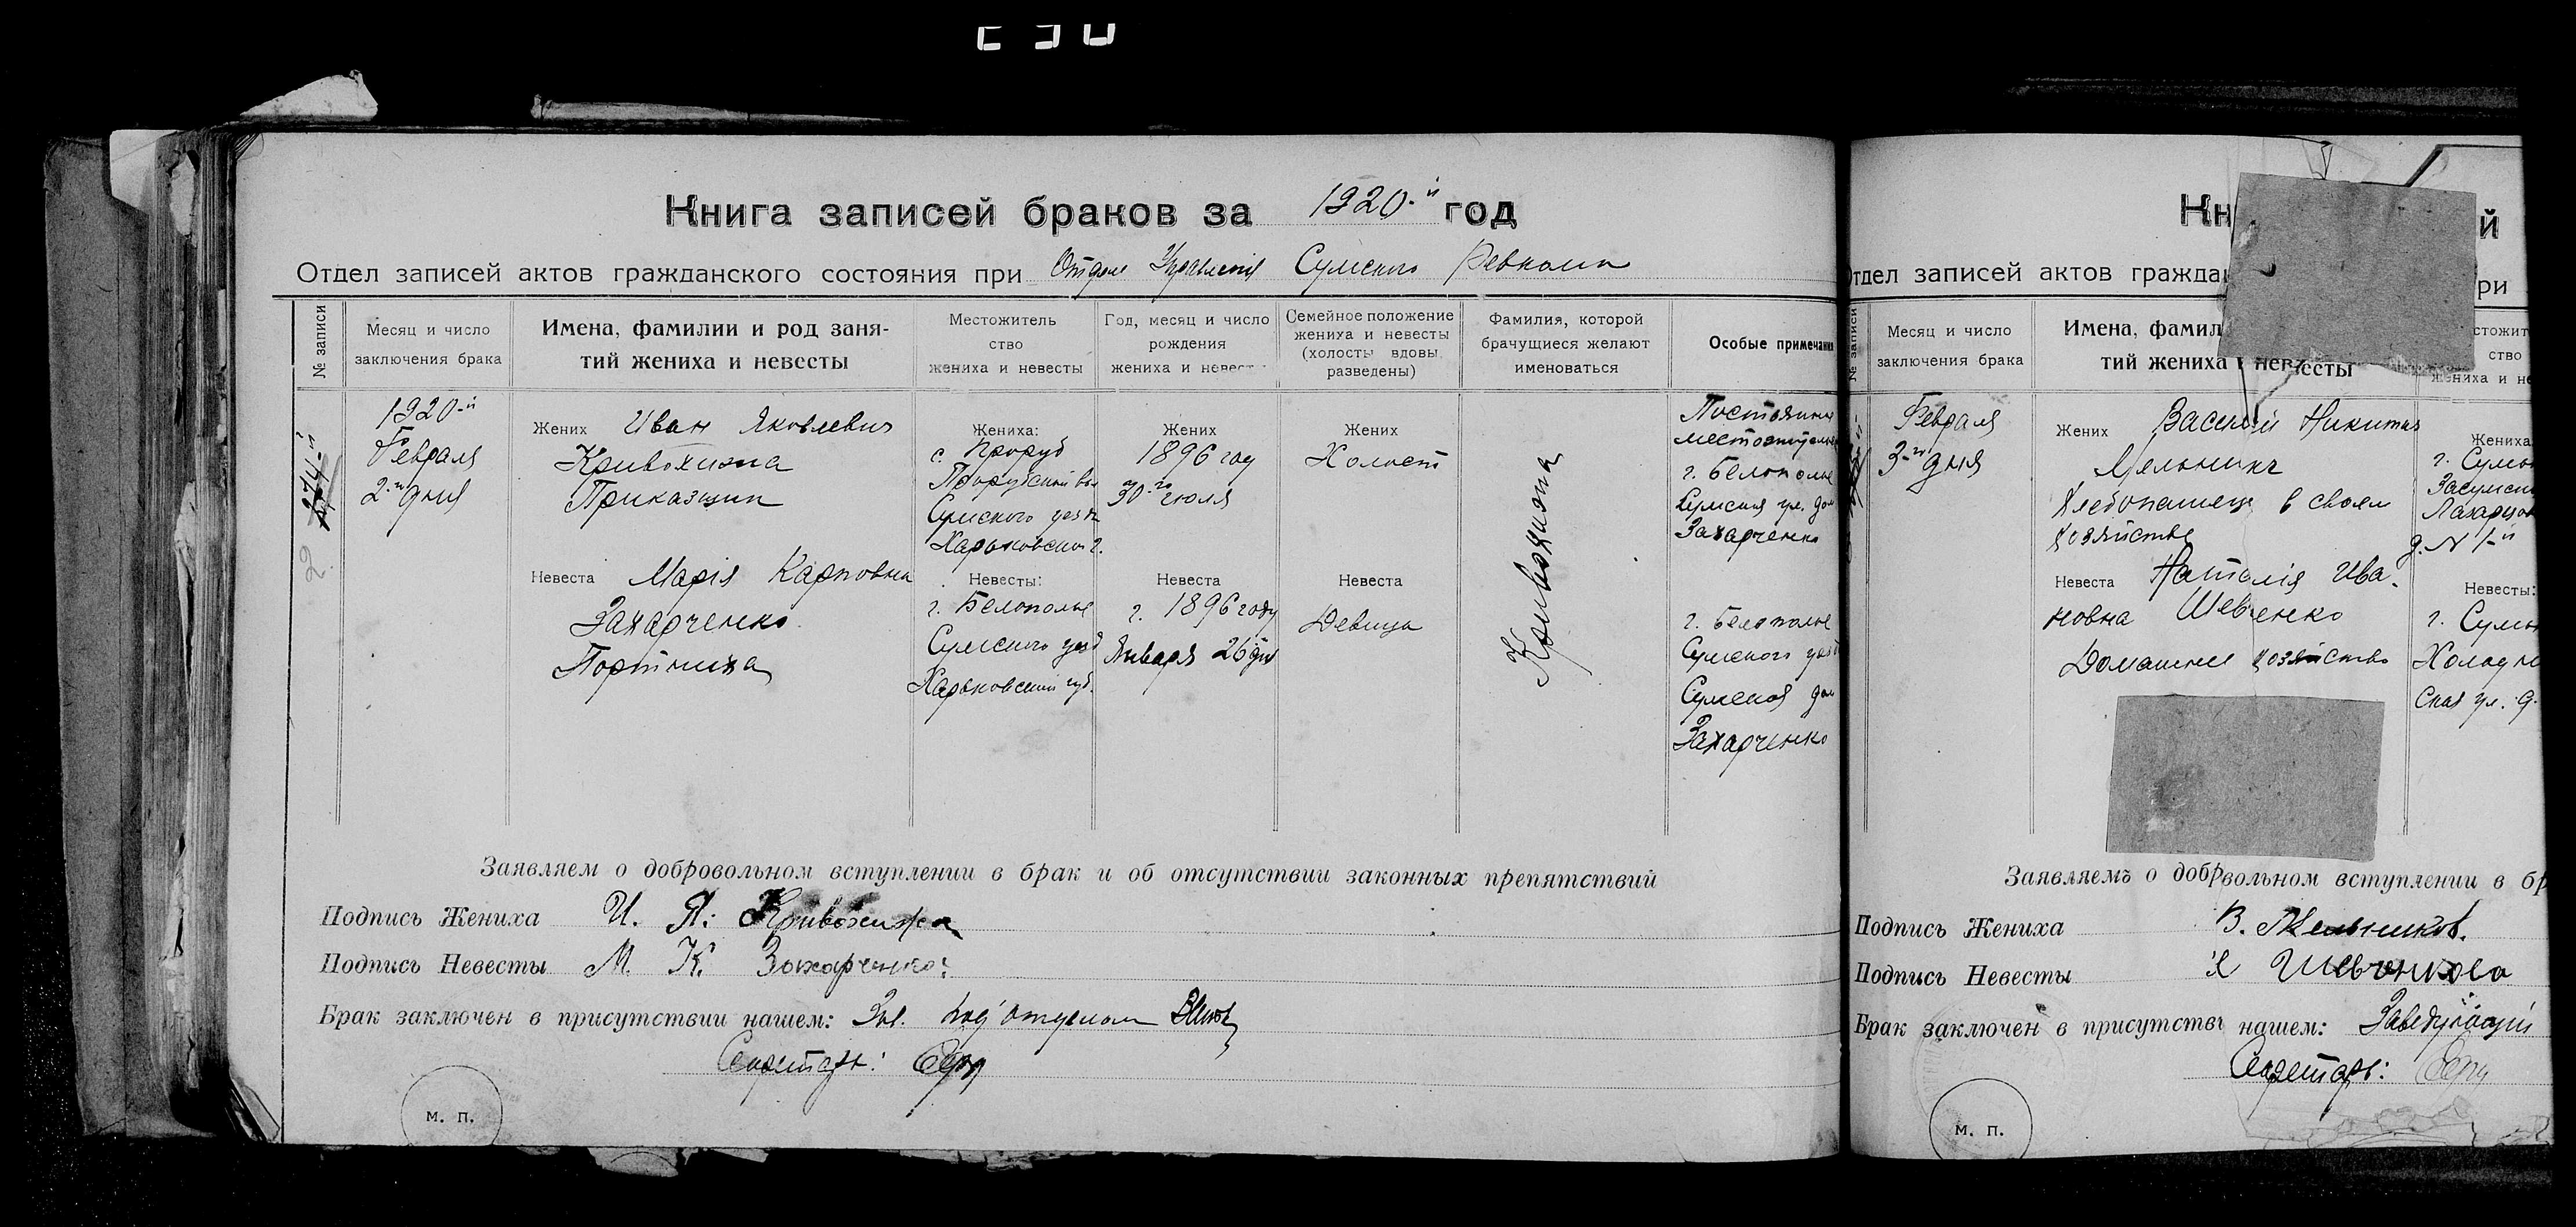 Книга записей браков за 1920-й год
Отдел записей актов гражданского состояния при Отделе Управления Сумского Ревкома
№ записи
Месяц и число
заключения брака
Имена, фамилии и род заня-
тий жениха и невесты
Местожитель
ство
жениха и невесты
Год, месяц и число
рождения
жениха и невесты
Семейное положение
жениха и невесты
(холосты вдовы
разведены)
Фамилия, которой
брачущиеся желают
именоваться
Особые примечания
2.
1920-й
Февраля
2-го дня
Жених Иван Яковлевич
Кривохижа
Приказщик
Невеста Марія Карповна
Захарченко
Портниха
Жениха:
с. Проруб
Прорубской вол
Сумского уезда
Харьковской г.
Невесты:
г. Белополье
Сумского уезд
Харьковский губ.
Жених
1896 году
30-го июля
Невеста
г. 1896 году
Января 26 дня
Жених
Холост
Невеста
Девица
Кривохижа
Постоянное
местожительс
г. Белополье
Сумская ул. дом
Захарченко
г. Белополье
Сумского уезд
Сумская дом
Захарченко
Заявляем о добровольном вступлении в брак и об отсутствии законных препятствий
Подпись Жениха И. Я: Кривохижа
Подпись Невесты М. К. Захарченко:
Брак заключен в присутствии нашем: Зав. под'отделом
Секретарь:
м. п.
Кн й
Отдел записей актов граждан ри
№ записи
Месяц и число
заключения брака
Имена, фамил
тий жениха и невесты
стожит
ство
жениха и не
Февраля
3-го дня
Жених Василий Никитич
Мельник
Хлебопашец в своем
хозяйстве
Невеста Наталія Ива-
новна Шевченко
Домашнее хозяйство
Жениха
г. Сумы
Засумск
д. N 1-й
Невесты:
г. Сумы
Холодно
ская ул. д.
Заявляемъ о добровольном вступлении в бр
Подпись Жениха В. Мельников.
Подпись Невесты Н Шевченкова
Брак заключен в присутстви нашем: Заведующий
Секретарь:
м. п.